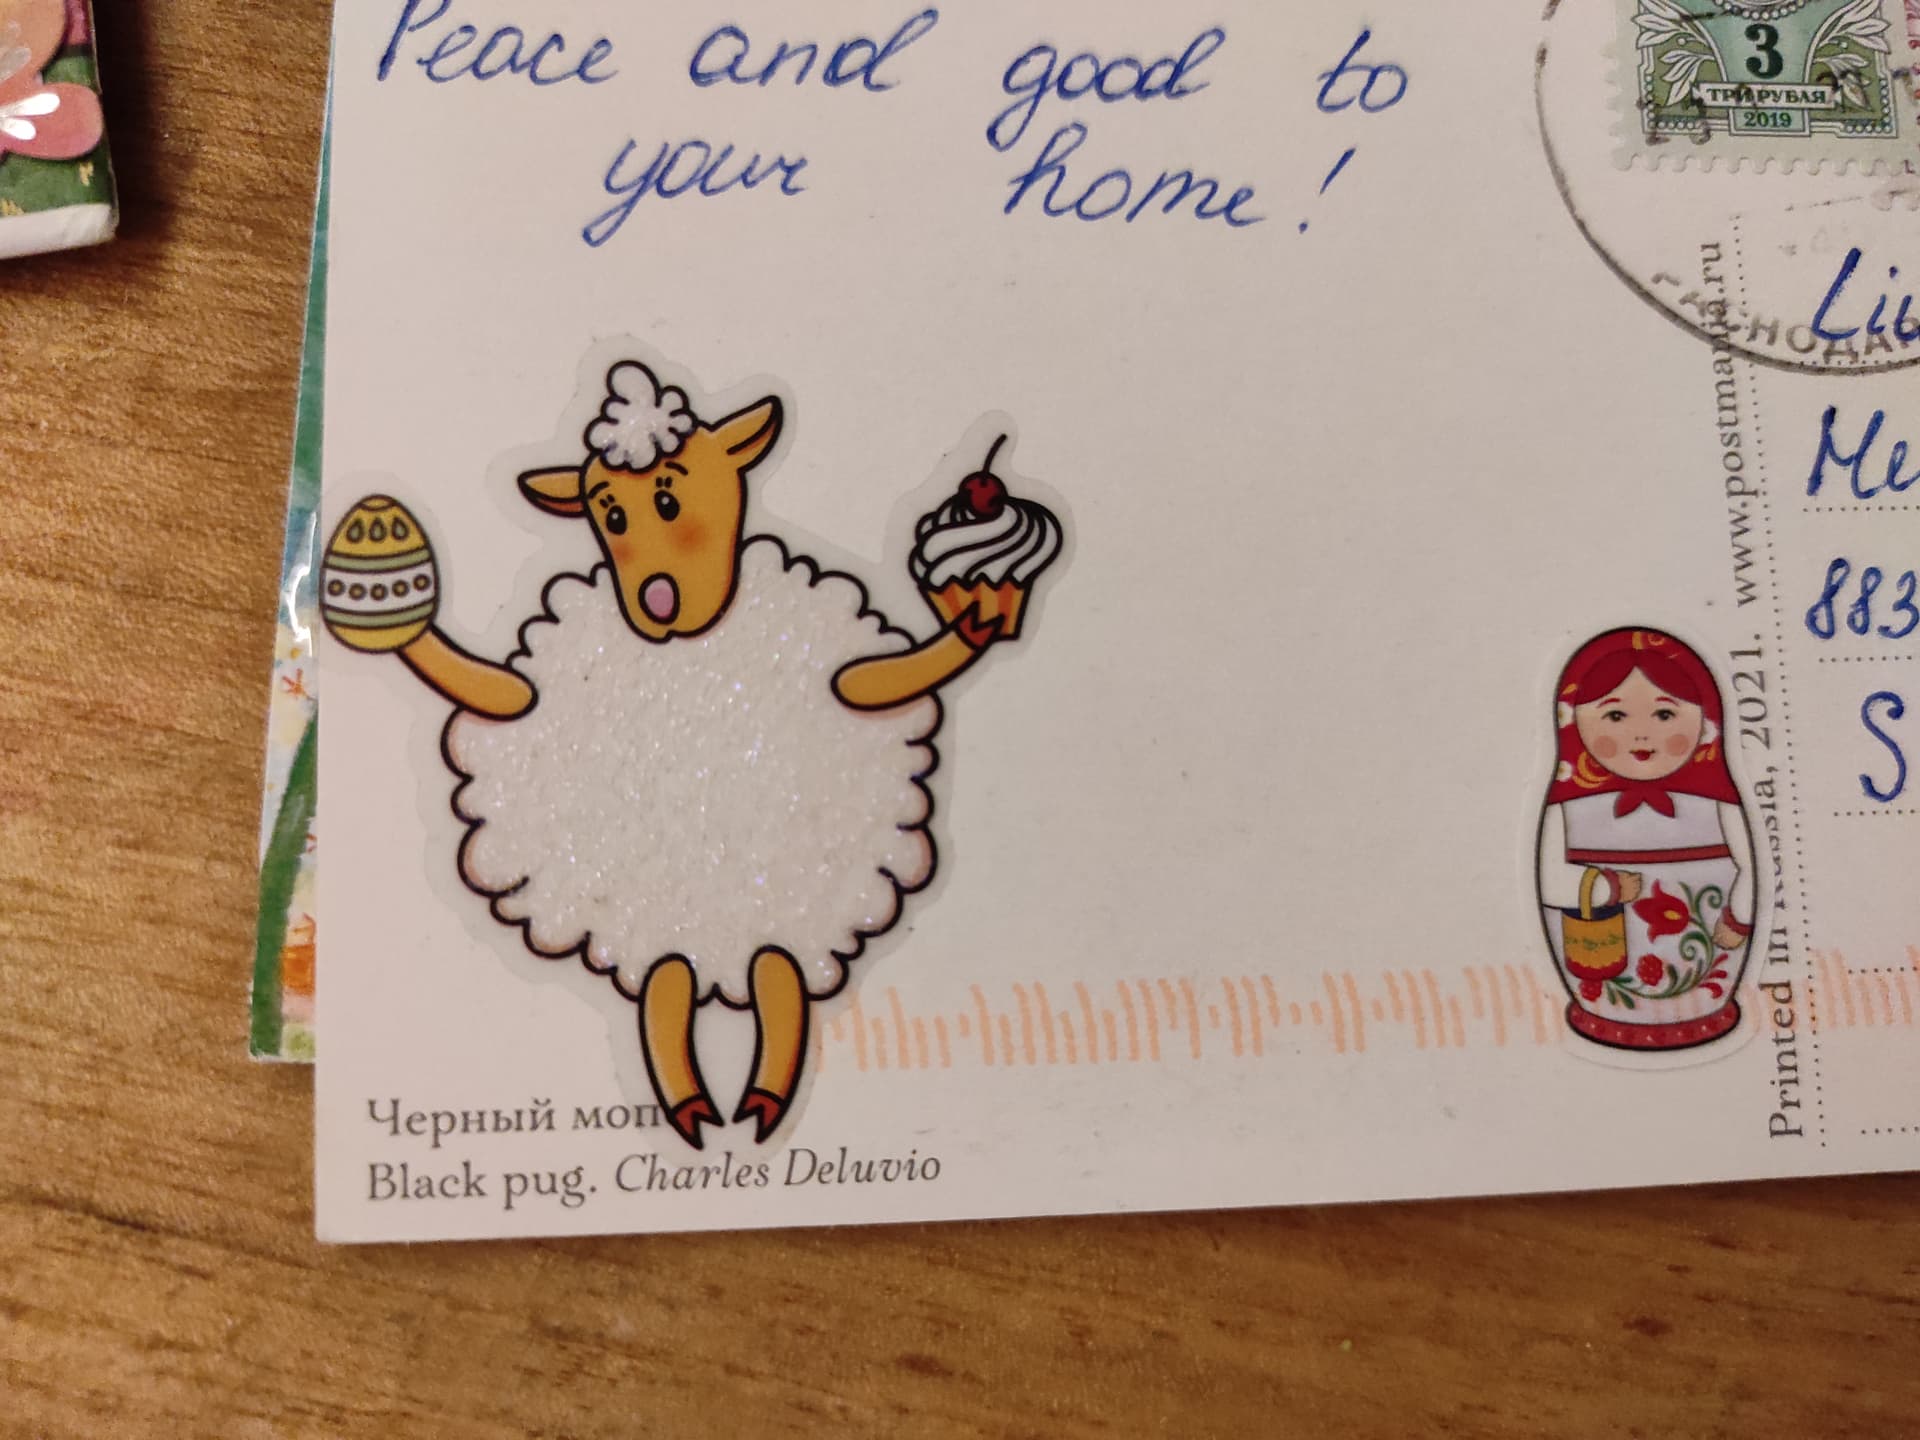 Peace and good to
your home!
3
ТРИ РУБЛЯ
2019
883
S
Printed in Russia, 2021. www.postmania.ru
Черный моп
Black pug. Charles Deluvio